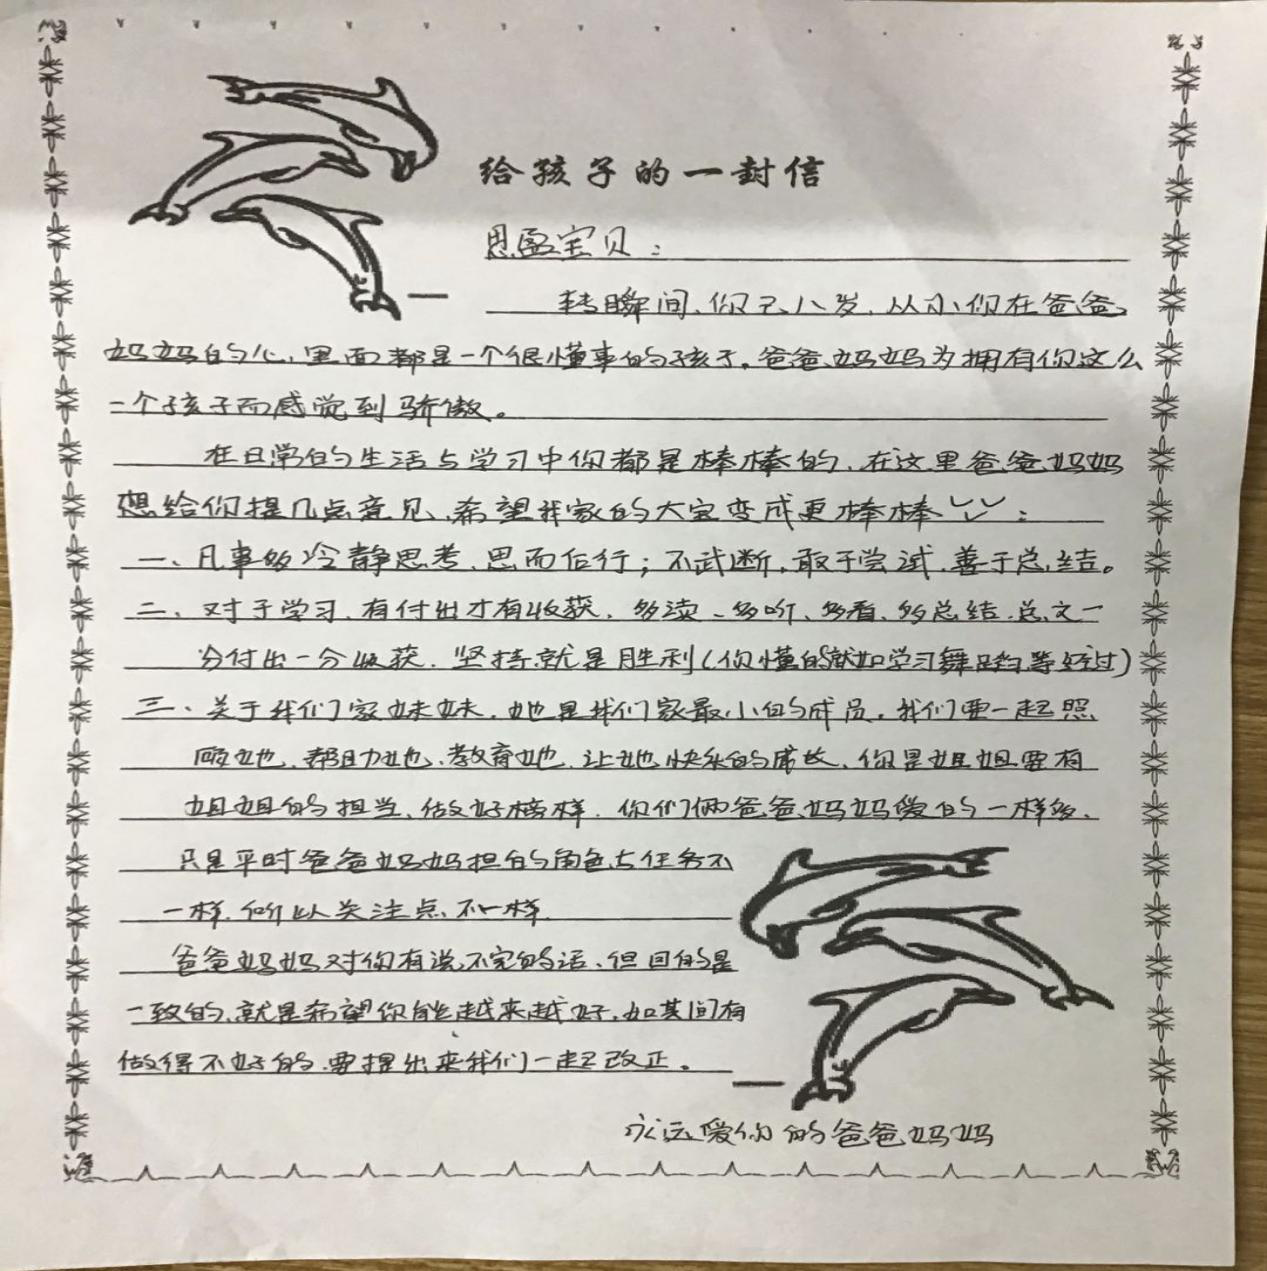 给孩子的一封信
恩盈宝贝：
转瞬间、你已八岁、从小你在爸爸、
妈妈的心里面都是一个很懂事的孩子。爸爸、妈妈为拥有你这么
一个孩子而感觉到骄傲。
在日常的生活与学习中你都是棒棒的、在这里爸爸妈妈
想给你提几点意见、希望我家的大宝变成更棒棒：
一、凡事多冷静思考、思而后行；不武断、敢于尝试、善于总结。
二、对于学习、有付出才有收获、多读、多听、多看、多总结、总之一
分付出一分收获、坚持就是胜利（你懂的就如学习舞蹈等经过）
三、关于我们家妹妹、她是我们家最小的成员。我们要一起照
顾她、帮助她、教育她、让她快乐的成长、你是姐姐要有
姐姐的担当、做好榜样、你们俩爸爸、妈妈爱的一样多、
只是平时爸爸妈妈担的角色与任务不
一样、所以关注点不一样、
爸爸妈妈对你有说不完的话、但目的是
一致的、就是希望你能越来越好、如其间有
做得不好的、要提出来我们一起改正。
永远爱你的爸爸妈妈